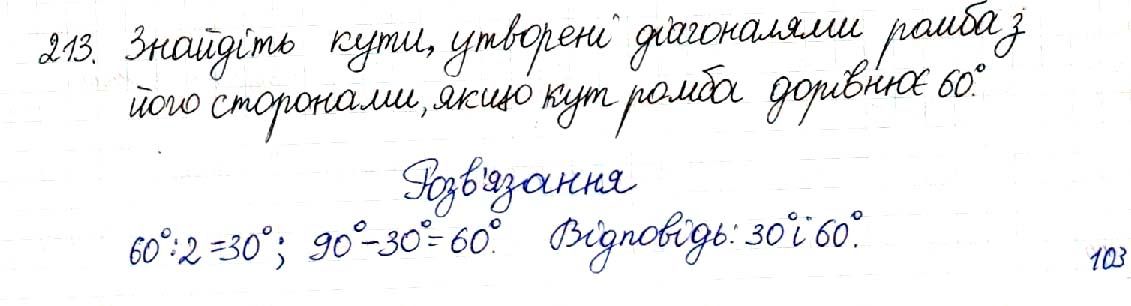 213. Знайдіть кути, утворені діагоналями ромба з
його сторонами, якщо кут ромба дорівнює 60°.
Розв'язання
60°:2=30°; 90°-30°=60°. Відповідь: 30° і 60°.
103